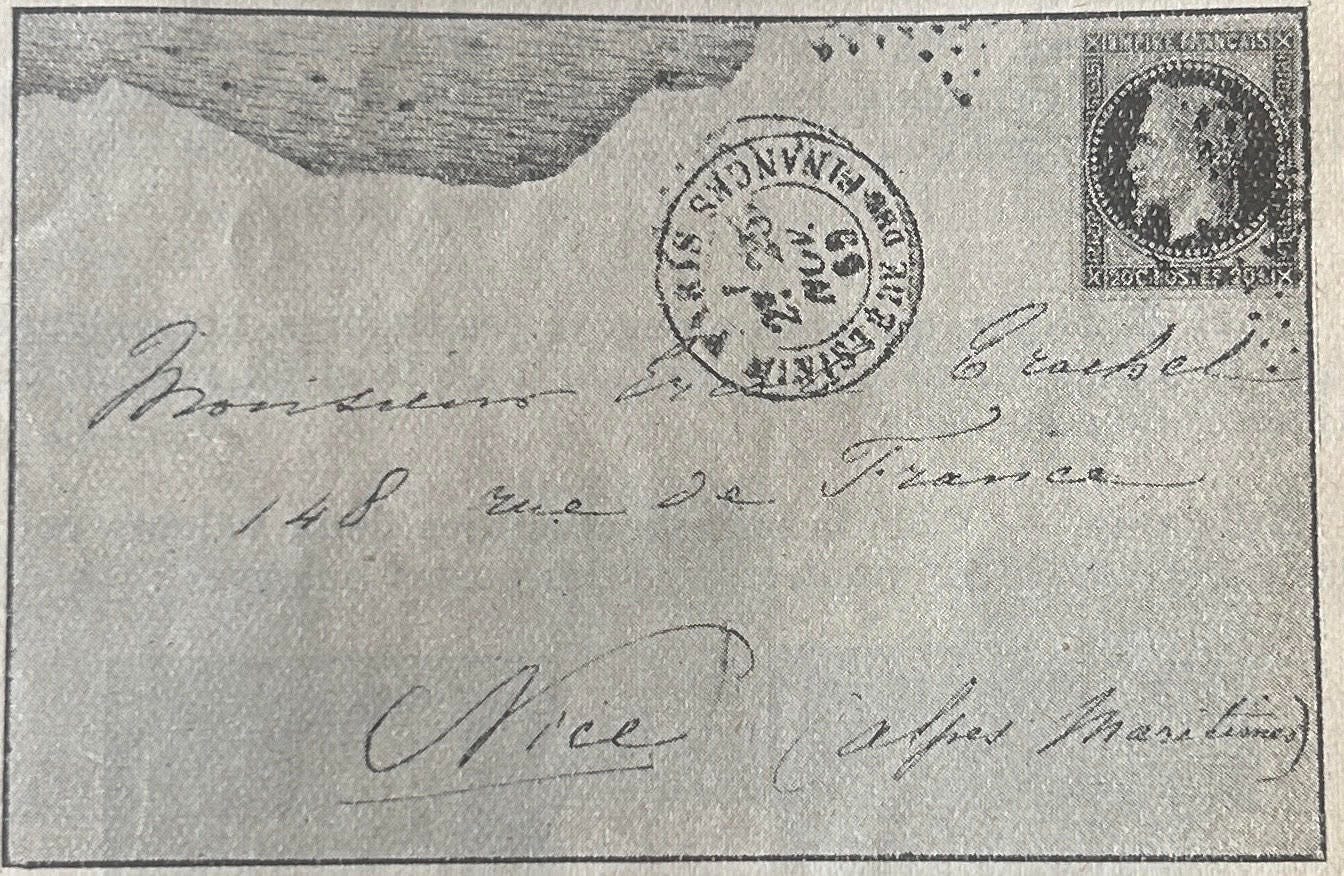 EMPIRE FRANÇAIS
20 C POSTES 20 C
PARIS
FINANCES
NOV.
69
Monsieur Trachel
148 rue de France
Nice (Alpes Maritimes)